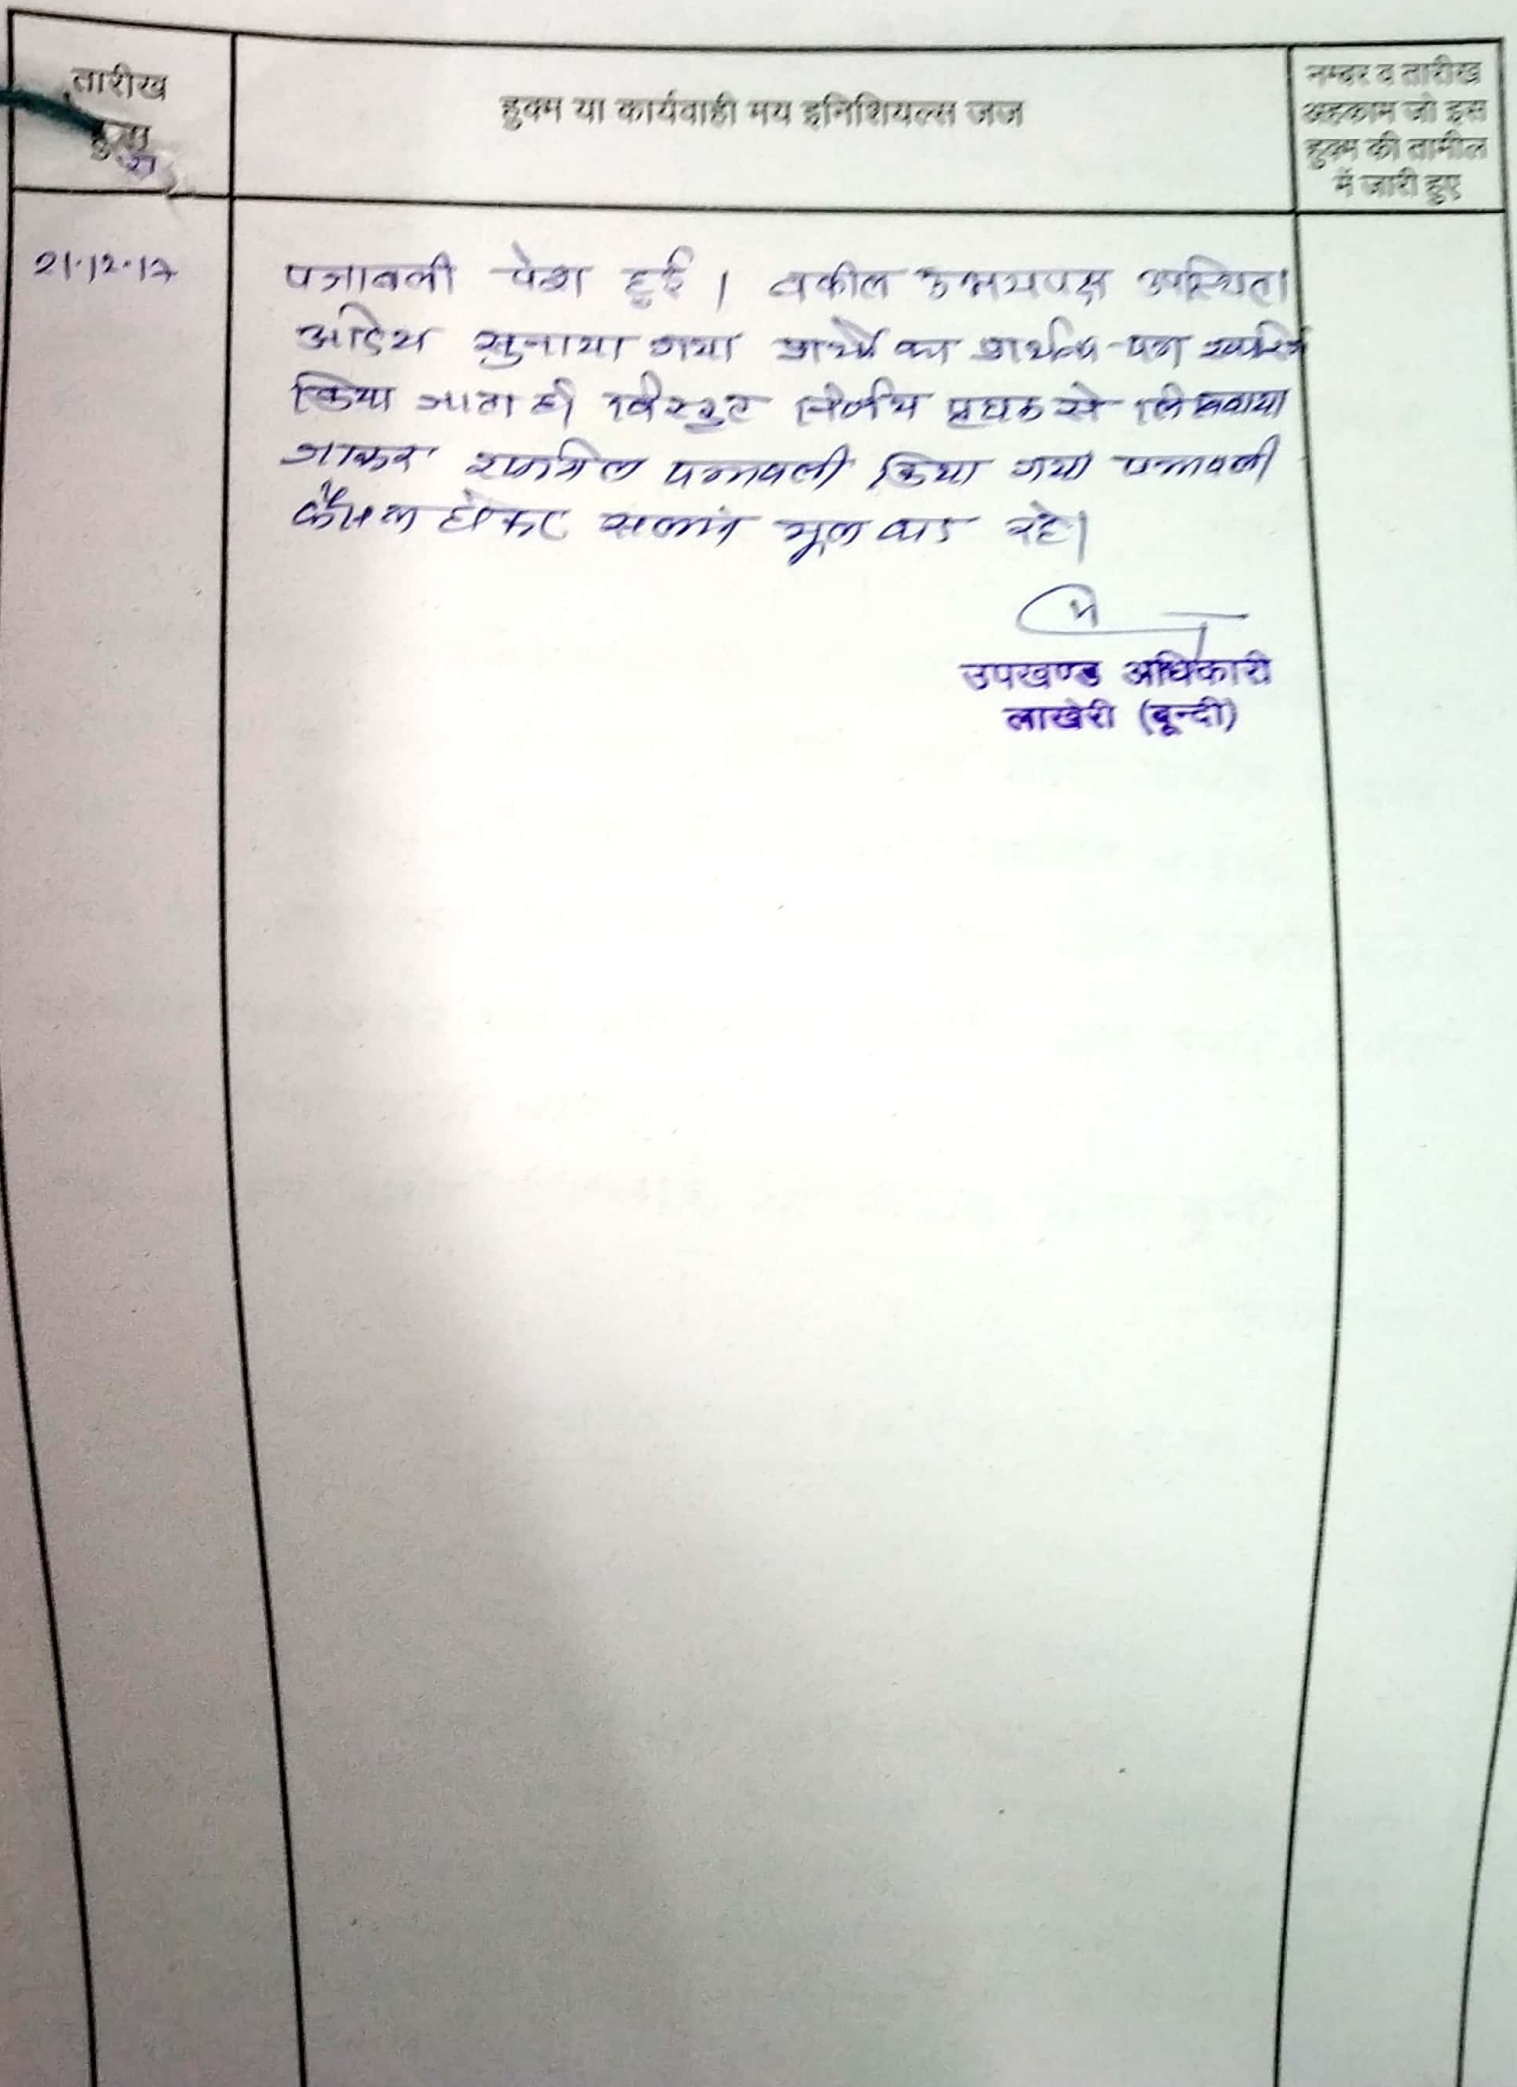 तारीख
हुक्म
हुक्म या कार्यवाही मय इनिशियल्स जज
नम्बर व तारीख
अहकाम जो इस
हुक्म की तामील
में जारी हुए
21.12.17
पत्रावली पेश हुई । वकील उभयपक्ष उपस्थित।
आदेश सुनाया गया प्रार्थी का प्रार्थना-पत्र खारिज
किया जाता है। विस्तृत निर्णय पृथक से लिखवाया
जाकर शामिल पत्रावली किया गया पत्रावली
फैसल होकर सलंग्न मूल वाद रहे।
उपखण्ड अधिकारी
लाखेरी (बून्दी)